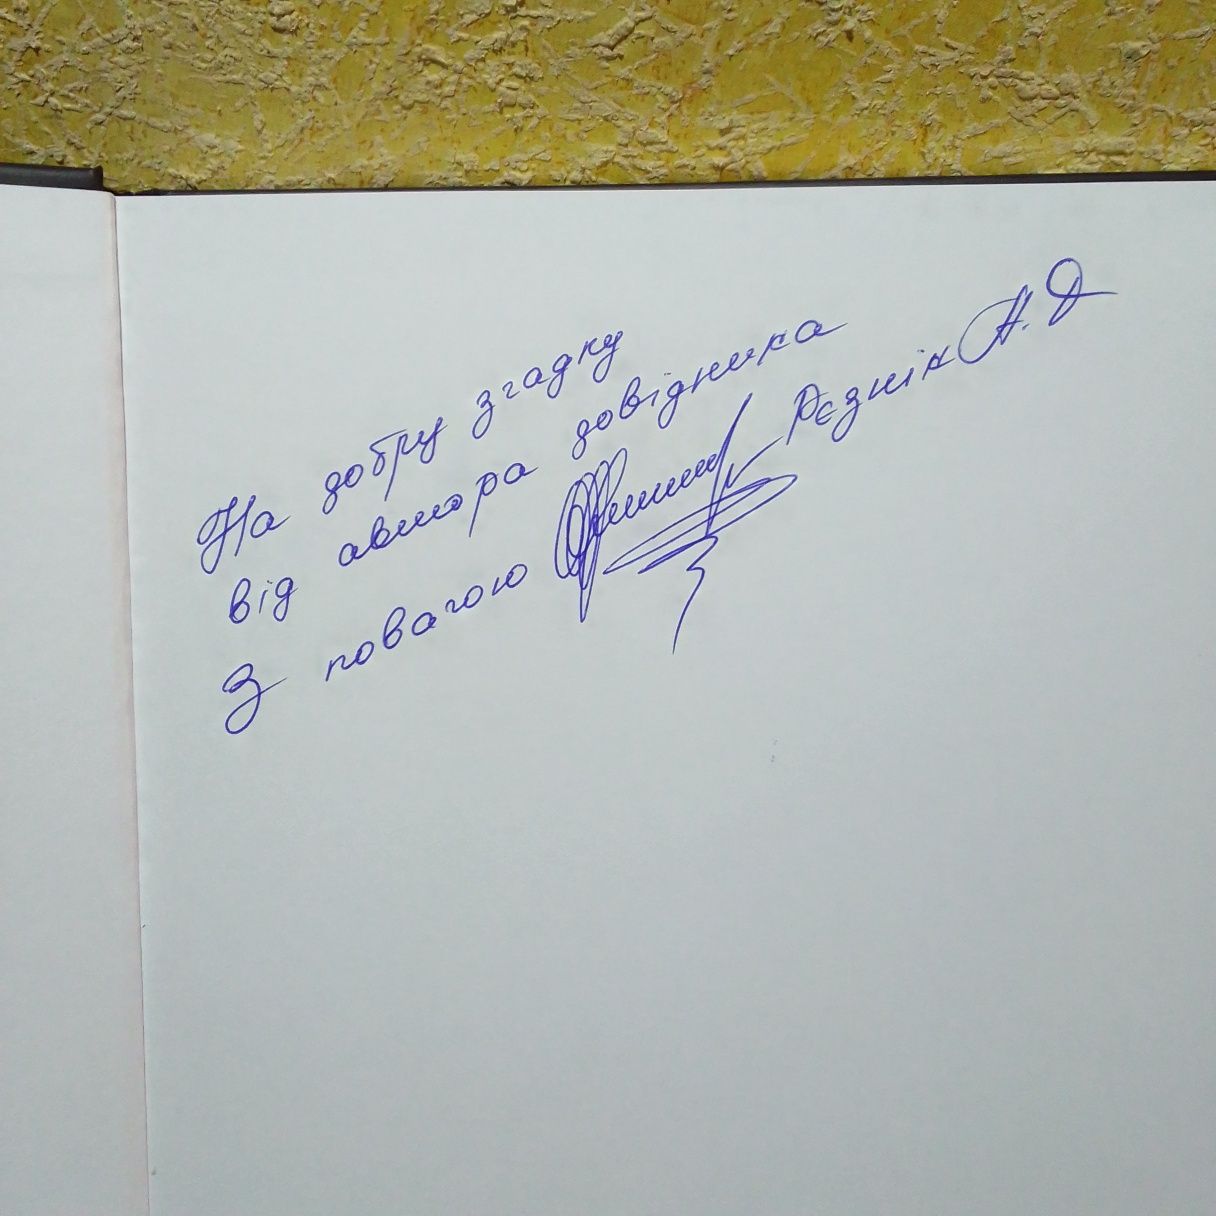 На добру згадку
від автора довідника
З повагою Рєзнік А. Д